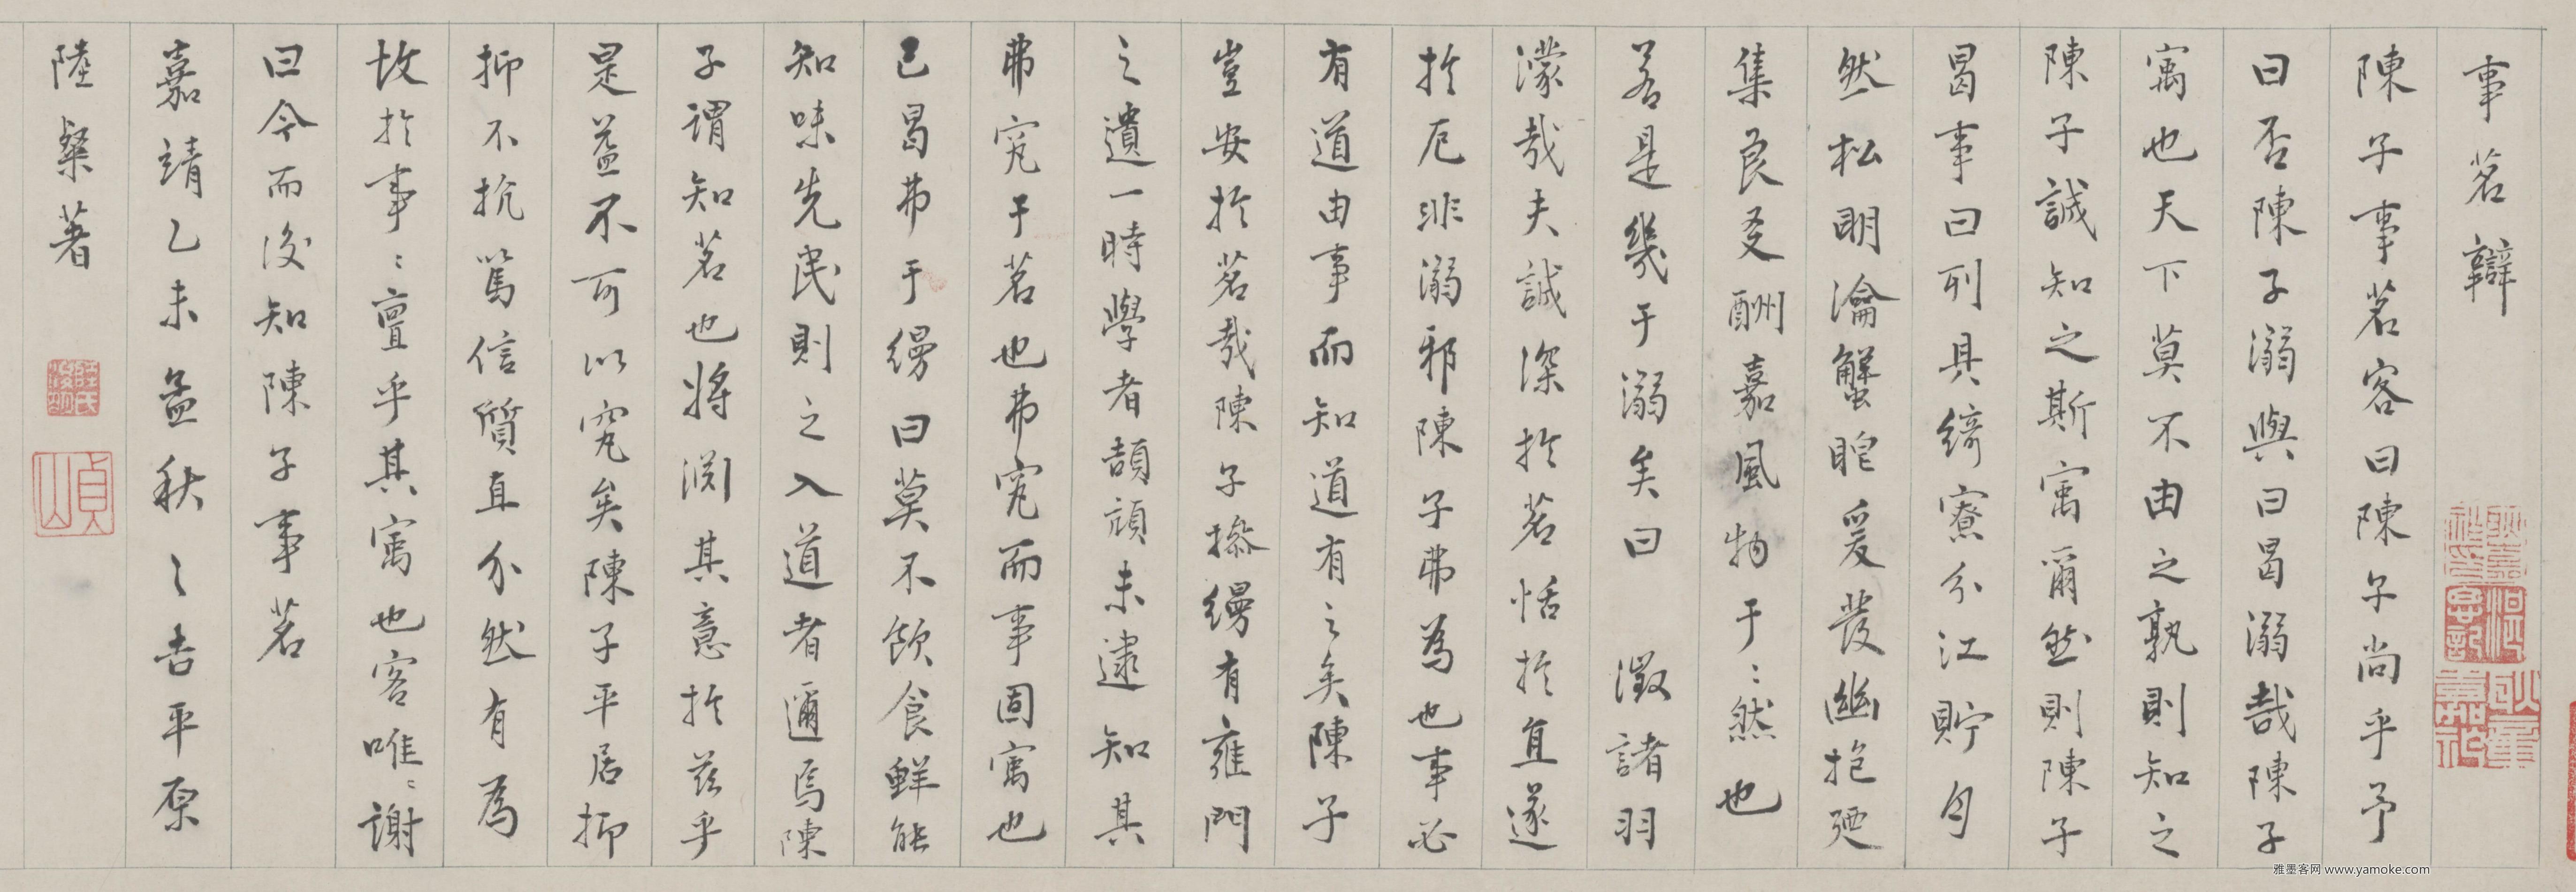 事茗辯
陳子事茗客曰陳子尚乎予
曰否陳子溺與曰曷溺哉陳子
寓也天下莫不由之孰則知之
陳子誠知之斯寓爾然則陳子
曷事曰列具綺寮分江貯月
然松明瀹蟹眼爰發幽抱廼
集良友酬嘉風物于〻然也
若是幾于溺矣曰 澂諸羽
濛哉夫誠深於茗恬於直遂
於厄非溺邪陳子弗為也事必
有道由事而知道有之矣陳子
豈安於茗哉陳子操縵有雍門
之遺一時學者頡頏未逮知其
弗究于茗也弗究而事固寓也
已曷弗于縵曰莫不飲食鮮能
知味先民則之入道者邇焉陳
子謂知茗也將淵其意於茲乎
是益不可以究矣陳子平居抑
抑不抗篤信質直介然有為
故於事〻亶乎其寓也客唯〻謝
曰今而後知陳子事茗
嘉靖乙未孟秋之吉平原
陸粲著
陸氏浚明
貞山
雅墨客网 www.yamoke.com